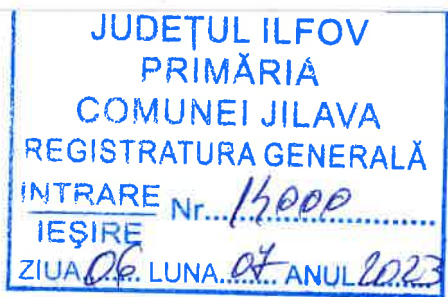 JUDEȚUL ILFOV
PRIMĂRIA
COMUNEI JILAVA
REGISTRATURA GENERALĂ
INTRARE
IEȘIRE
Nr....14000............
ZIUA 06 LUNA 07 ANUL 2023